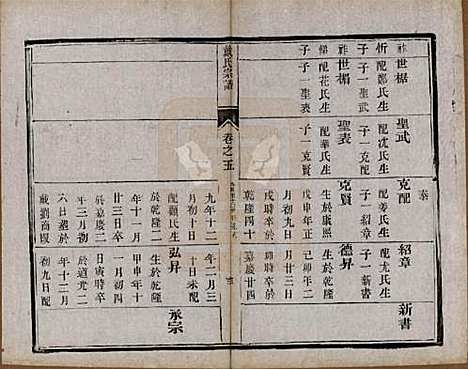 泰
祚世椐
忻配鄭氏生
子一聖武
聖武
配沈氏生
子一克配
克配
配姜氏生
子一紹章
紹章
配尤氏生
子一新書
新書
祚世楣
㷆配花氏生
子一聖表
聖表
配華氏生
子一克賢
克賢
生於康熙
戊申年正
月初九日
戌時卒於
乾隆四十
九年十二
月初十日
配顧氏生
於乾隆二
年十一月
廿三日卒
於嘉慶二
年三月初
六日塟於
戴劉商
德昇
己卯年二
月廿三日
時卒
嘉慶廿四
年二月三
十日未配
弘昇
生於乾隆
甲申年十
一月初四
日寅時卒
於道光二
年十二月
初九日配
承宗
戴氏宗譜
卷之五